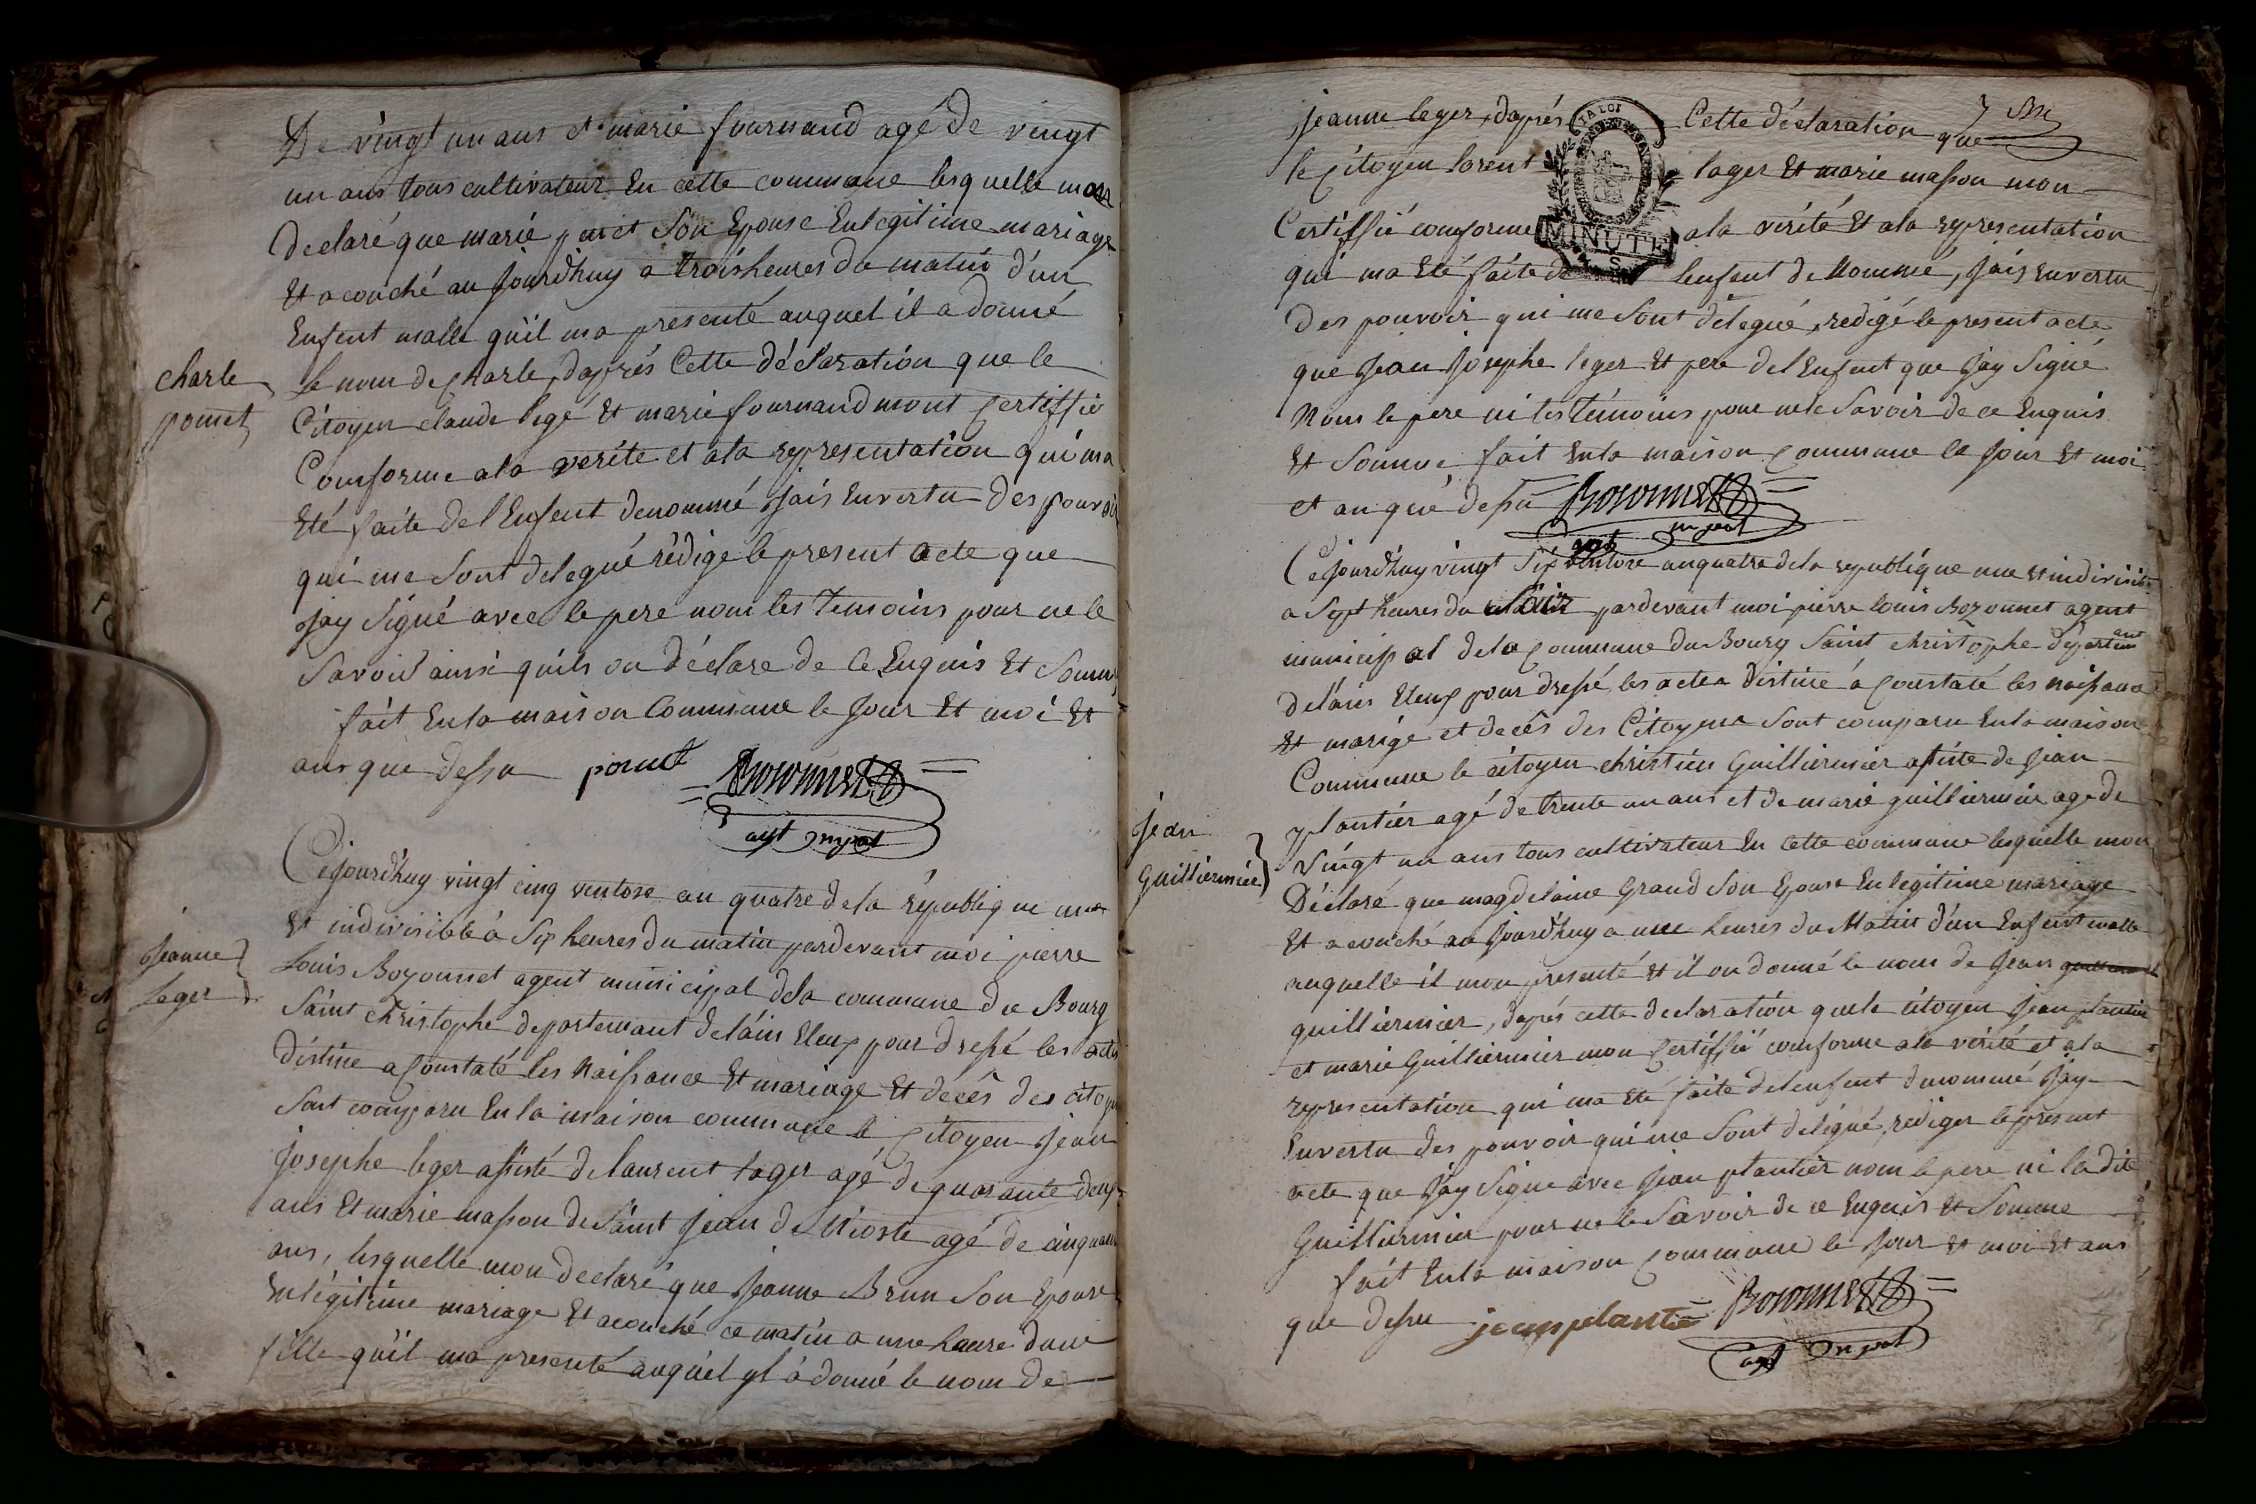 De vingt un ans et marie fournand agé de vingt
un ans tous cultivateur En cette commune lesquelle mon
declaré que marie Son Epouse En legitime mariage
Et a couché au jourdhuy a trois heures du matin d'un
Enfent malle quil ma presenté auquel il a donné
charle
pomet
le nom de charle, daprés Cette déclaration que le
Citoyen claude legé Et marie fournand mont Certiffié
Comforme ala verite et ala representation qui ma
Eté faite de l'Enfent denommé jais Envertu des pouvoir
qui me Sont delegué rédige le present acte que
jay Signé avec le pere nom les temoins pour ne le
Savoir ainsi quils on déclare de ce Enquis Et Somme
fait En la maison Commune le jour Et moi Et
ans que dessu pomet Bozonnet
agt mpal
Cejourdhuy vingt cinq ventose an quatre dela république une
Et indivisible à Six heures du matin pardevant moi pierre
Jeanne
Leger
Louis Bozonnet agent municipal dela commune du Bourg
Saint christophe departemant delain Eleux pour dressé les actes
déstine a Constaté les Naissance Et mariage Et décés des citoyen
Sont comparu En la maison commune le Citoyen Jean
Josephe leger assisté de laurent lager agé de quarante deux
ans Et marie masson de Saint jean de Nioste agé de cinquante
ans, lesquelle mon declaré que Jeanne Brun Son Epouse
En légitime mariage Et acouché ce matin a une heure dune
fille quil ma presenté auquel yl à donné le nom de
jeanne leger, daprés Cette déclaration que
le Citoyen lorent lager Et marie masson mon
Certiffié comforme ala vérité Et ala representation
LA LOI
MINUTE
qui ma Eté faite de lenfent de Nommé, jais Envertu
Des pouvoir qui me Sont délegué, redigé le present acte
que Jean Josephe leger Et pere del Enfent que Jay Signé
Nom le pere ni les témoins pour ne le Savoir de ce Enquis
Et Somme fait En la maison Commune le jour Et moi
et an que dessu Bozonnet
agt mpal
Cejourdhuy vingt Six ventose an quatre dela republique une Et indivisible
a Sept heures du Soir pardevant moi pierre louis Bozonnet agent
municipal dela Commune du Bourg Saint christophe departemant
delain Eleux pour dressé les actes distiné á Constaté les naissance
Et marige et decés des Citoyens Sont comparu En la maison
Commune le citoyen christin Guilliermier assiste de jean
plantier agé de trente un ans et de marie guilliermier age de
jean
Guilliermier
vingt un ans tous cultivateur En cette commune lesquelle mon
Déclaré que magdelaine Grand Son Epouse En legitime mariage
Et a couché au jourdhuy a une heures du Matin d'un Enfent malle
auquelle il mon presenté Et il on donné le nom de Jean
guilliermier, daprés cette declaration que le citoyen jean plantier
et marie Guilliermier mon Certiffié comforme ala vérité et ala
representation qui ma Eté faite del enfent denommé Jay
Envertu des pouvoir qui me Sont deligué, rediger le present
acte que jay Signe avec Jean plantier nom le pere ni la dite
Guilliermier pour ne le Savoir de ce Enquis Et Somme
fait En la maison Commune le jour Et moi Et ans
que dessu jean plantie Bozonnet
agt mpal